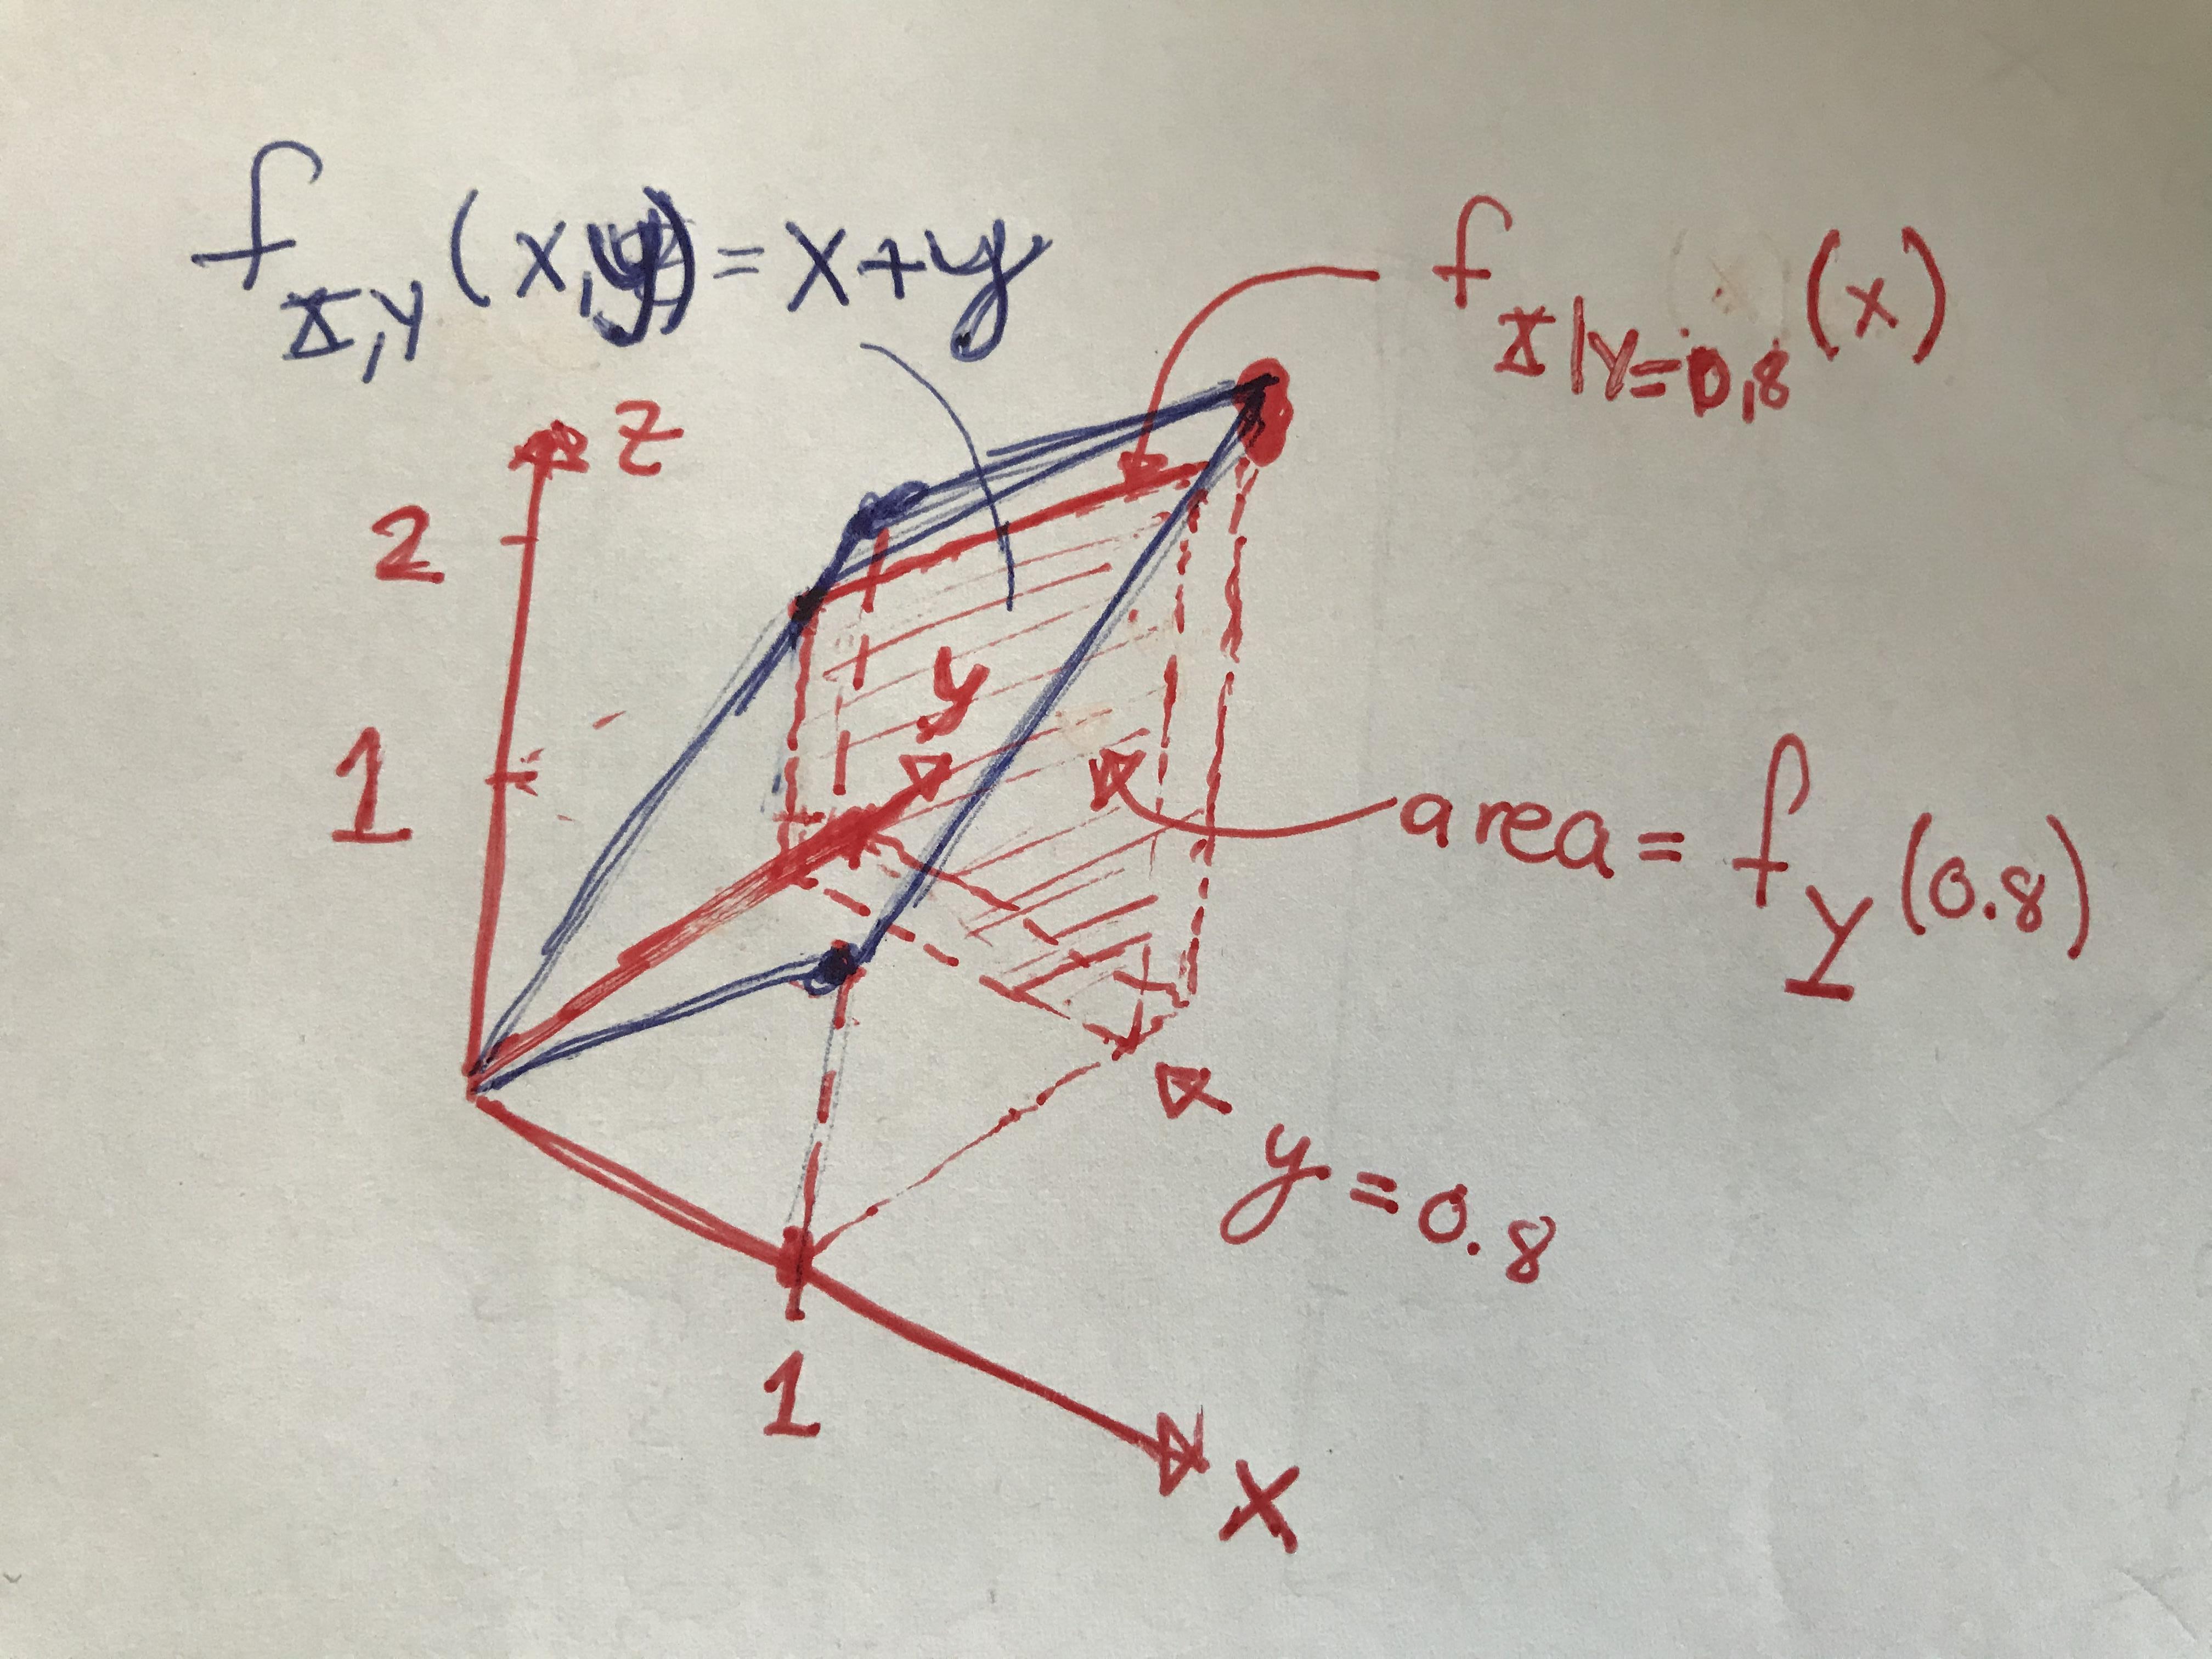 f_X,Y (x,y) = x+y
f_X|Y=0,8 (x)
z
2
y
1
area = f_Y (0.8)
y = 0.8
1
x